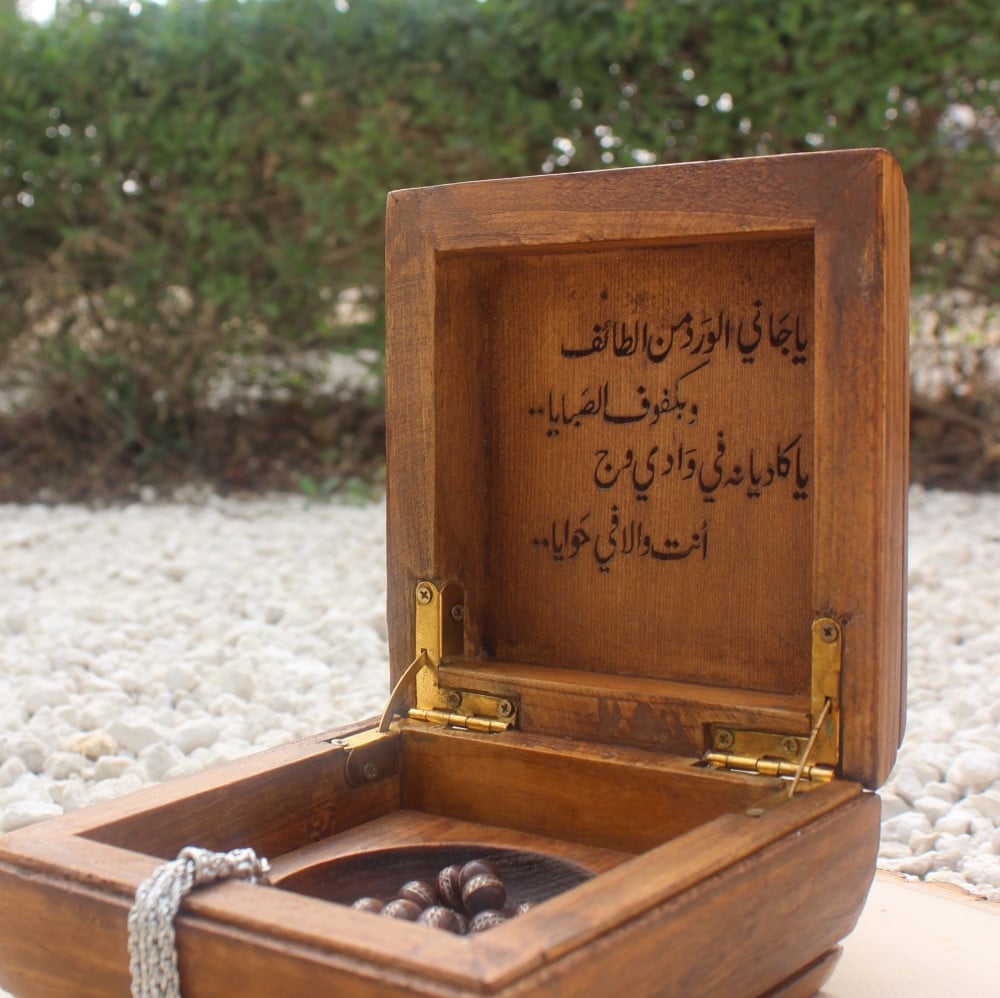 يا جَاني الوَرد من الطائف
وبكفوف الصَبايا..
يا كاديانه في وَادي وج
أنت والا في حَوايا..